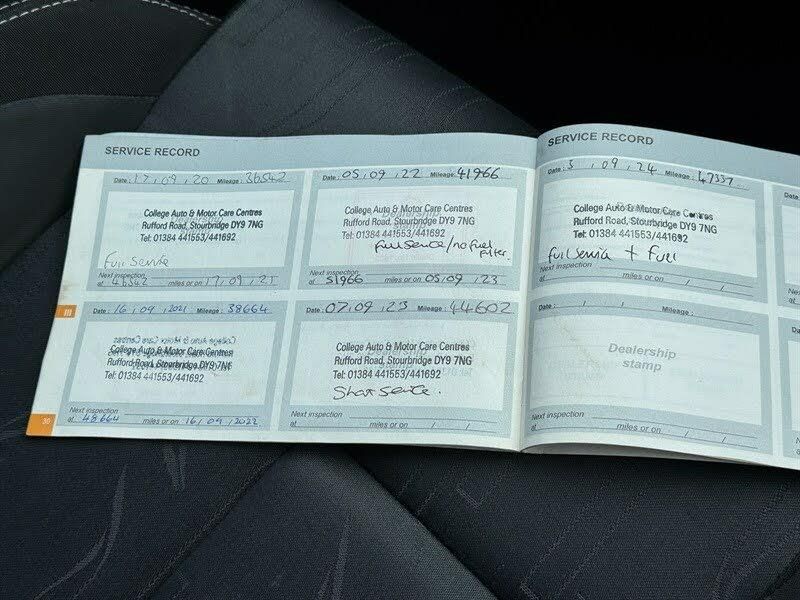 SERVICE RECORD
Date: 17, 09, 20 Mileage: 36542
College Auto & Motor Care Centres
Rufford Road, Stourbridge DY9 7NG
Tel: 01384 441553/441692
Full Service
Next inspection
at 46542 miles or on 17, 09, 21
Date: 16, 09, 2021 Mileage: 38664
College Auto & Motor Care Centres
Rufford Road, Stourbridge DY9 7NG
Tel: 01384 441553/441692
Next inspection
at 48664 miles or on 16, 09, 2022
Date: 05, 09, 22 Mileage: 41966
College Auto & Motor Care Centres
Rufford Road, Stourbridge DY9 7NG
Tel: 01384 441553/441692
Full Service/no fuel
Filter.
Next inspection
at 51966 miles or on 05, 09, 23
Date: 07, 09, 23 Mileage: 44602
College Auto & Motor Care Centres
Rufford Road, Stourbridge DY9 7NG
Tel: 01384 441553/441692
Short Service.
Next inspection
at miles or on / /
30
SERVICE RECORD
Date: 3, 09, 24 Mileage: 47337
College Auto & Motor Care Centres
Rufford Road, Stourbridge DY9 7NG
Tel: 01384 441553/441692
Full Service + Fuel
Next inspection
at miles or on / /
Date: / / Mileage:
Dealership
stamp
Next inspection
at miles or on / /